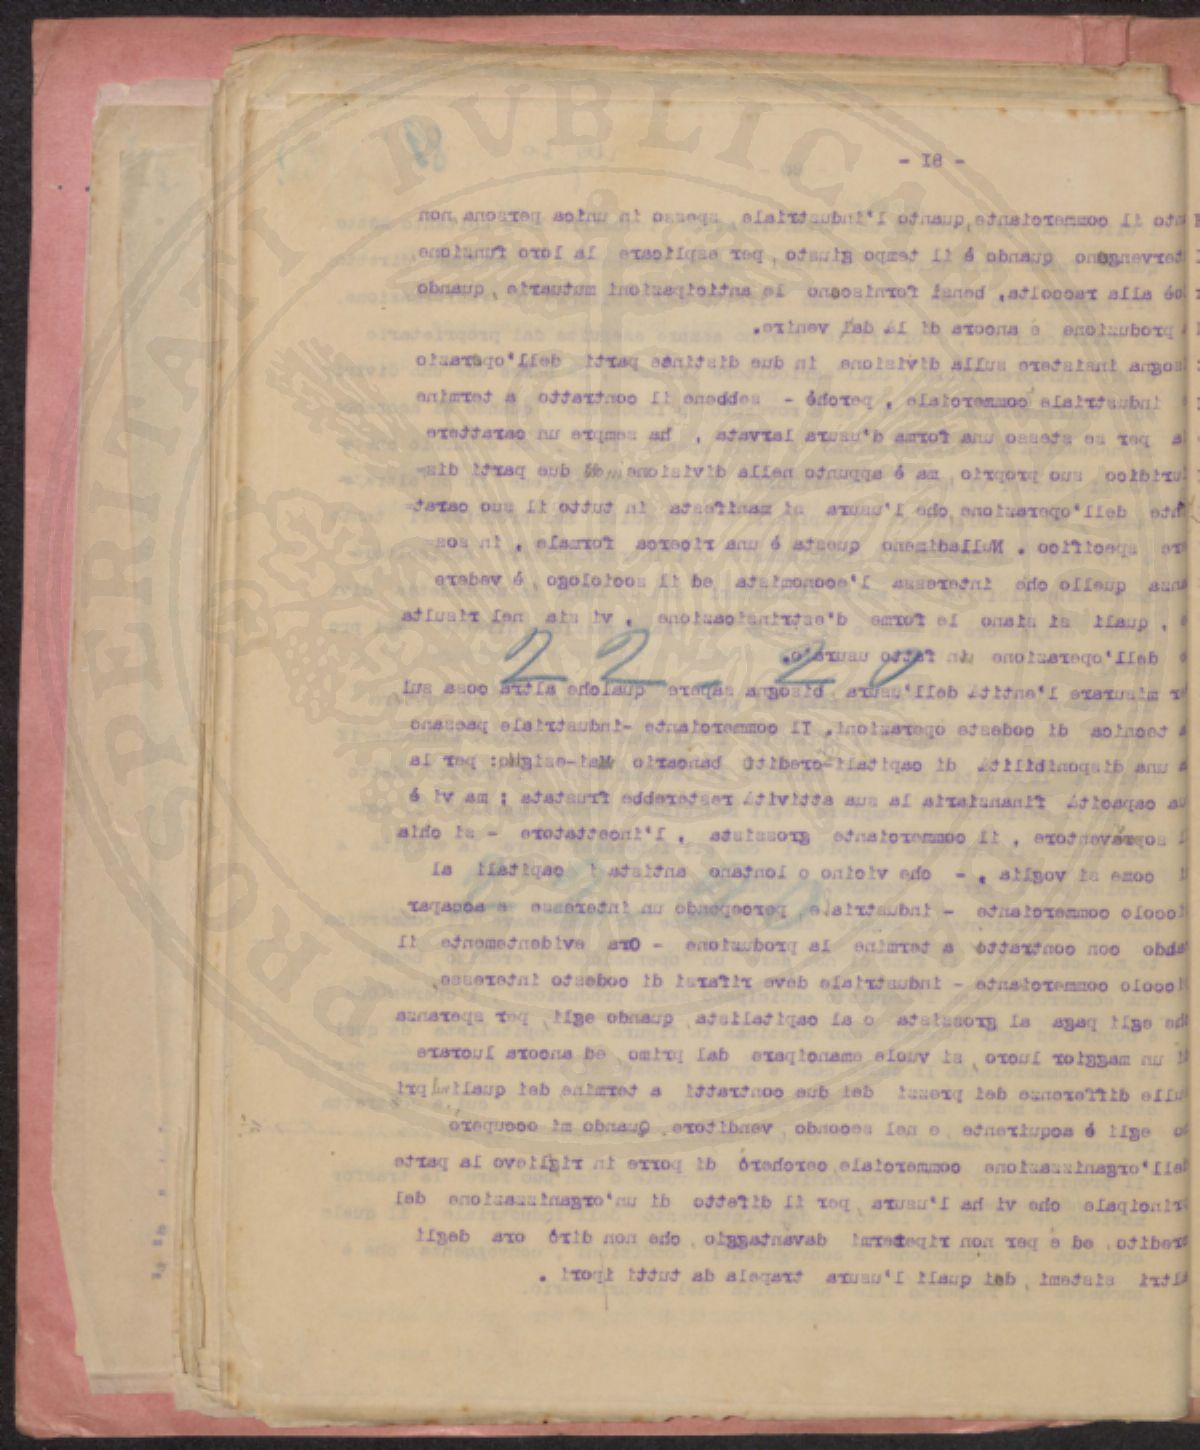 - 81 -
nto il commerciante, quanto l'industriale, spesso in unica persona, non
tervengono quando è il tempo giusto, per esplicare la loro funzione
oè alla raccolta, bensì forniscono le anticipazioni mutuarie, quando
produzione è ancora di là dal venire.
sogna insistere sulla divisione in due distinte parti dell'operazio
industriale commerciale, perchè - sebbene il contratto a termine
a per se stesso una forma d'usura larvata, ha sempre un carattere
uridico suo proprio, ma è appunto nella divisione di due parti dis-
nte dell'operazione, che l'usura si manifesta in tutto il suo carat-
re specifico. Nulladimeno questa è una ricerca formale, in sos-
anza quello che interessa l'economista ed il sociologo, è vedere
e, quali si siano le forme d'estrinsicazione, vi sia nel risulta
o dell'operazione un fatto usurario.
22 - 20
er misurare l'entità dell'usura bisogna sapere qualche altra cosa sul
a tecnica di codeste operazioni. Il commerciante -industriale paesano
a una disponibilità di capitali-crediti bancario Mai-esiguo: per la
ua capacità finanziaria la sua attività resterebbe frustata; ma vi è
l sopraventore, il commerciante grossista, l'incettatore - si chia
i come si voglia, - che vicino o lontano antista i capitali al
iccolo commerciante - industriale, percependo un interesse e accapar
ando con contratto a termine la produzione - Ora evidentemente il
iccolo commerciante - industriale deve rifarsi di codesto interesse,
he egli paga al grossista o al capitalista, quando egli, per speranza
i un maggior lucro, si vuole emancipare dal primo, ed ancora lucrare
ulle differenze dei prezzi dei due contratti a termine dei quali pri
o egli è acquirente, e nel secondo, venditore. Quando mi occuperò
ell'organizzazione commerciale, cercherò di porre in riglievo la parte
rincipale che vi ha l'usura, per il difetto di un'organizzazione del
redito, ed è per non ripetermi davantaggio, che non dirò ora degli
ltri sistemi, dei quali l'usura trapela da tutti i pori.
PROSPERITATI PVBLICAE